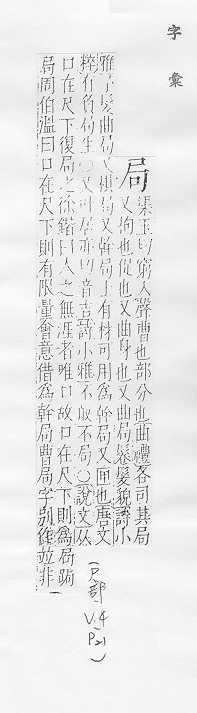 字彙
局
渠玉切窮入聲曹也部分也曲禮各司其局
又拘也促也又曲身也又曲局鬈髮貌詩小
雅予髮曲局又棋局又幹局又有材可用爲幹局又匣也唐文
粹有負局生〇又叶居亦切音吉詩小雅不敢不局〇說文从
口在尺下復局之徐鍇曰人之無涯者唯口故口在尺下則爲局跼
局周伯溫曰口在尺下則有限量會意借爲幹局曹局字別從竝非
(尸部
V.4
P21)